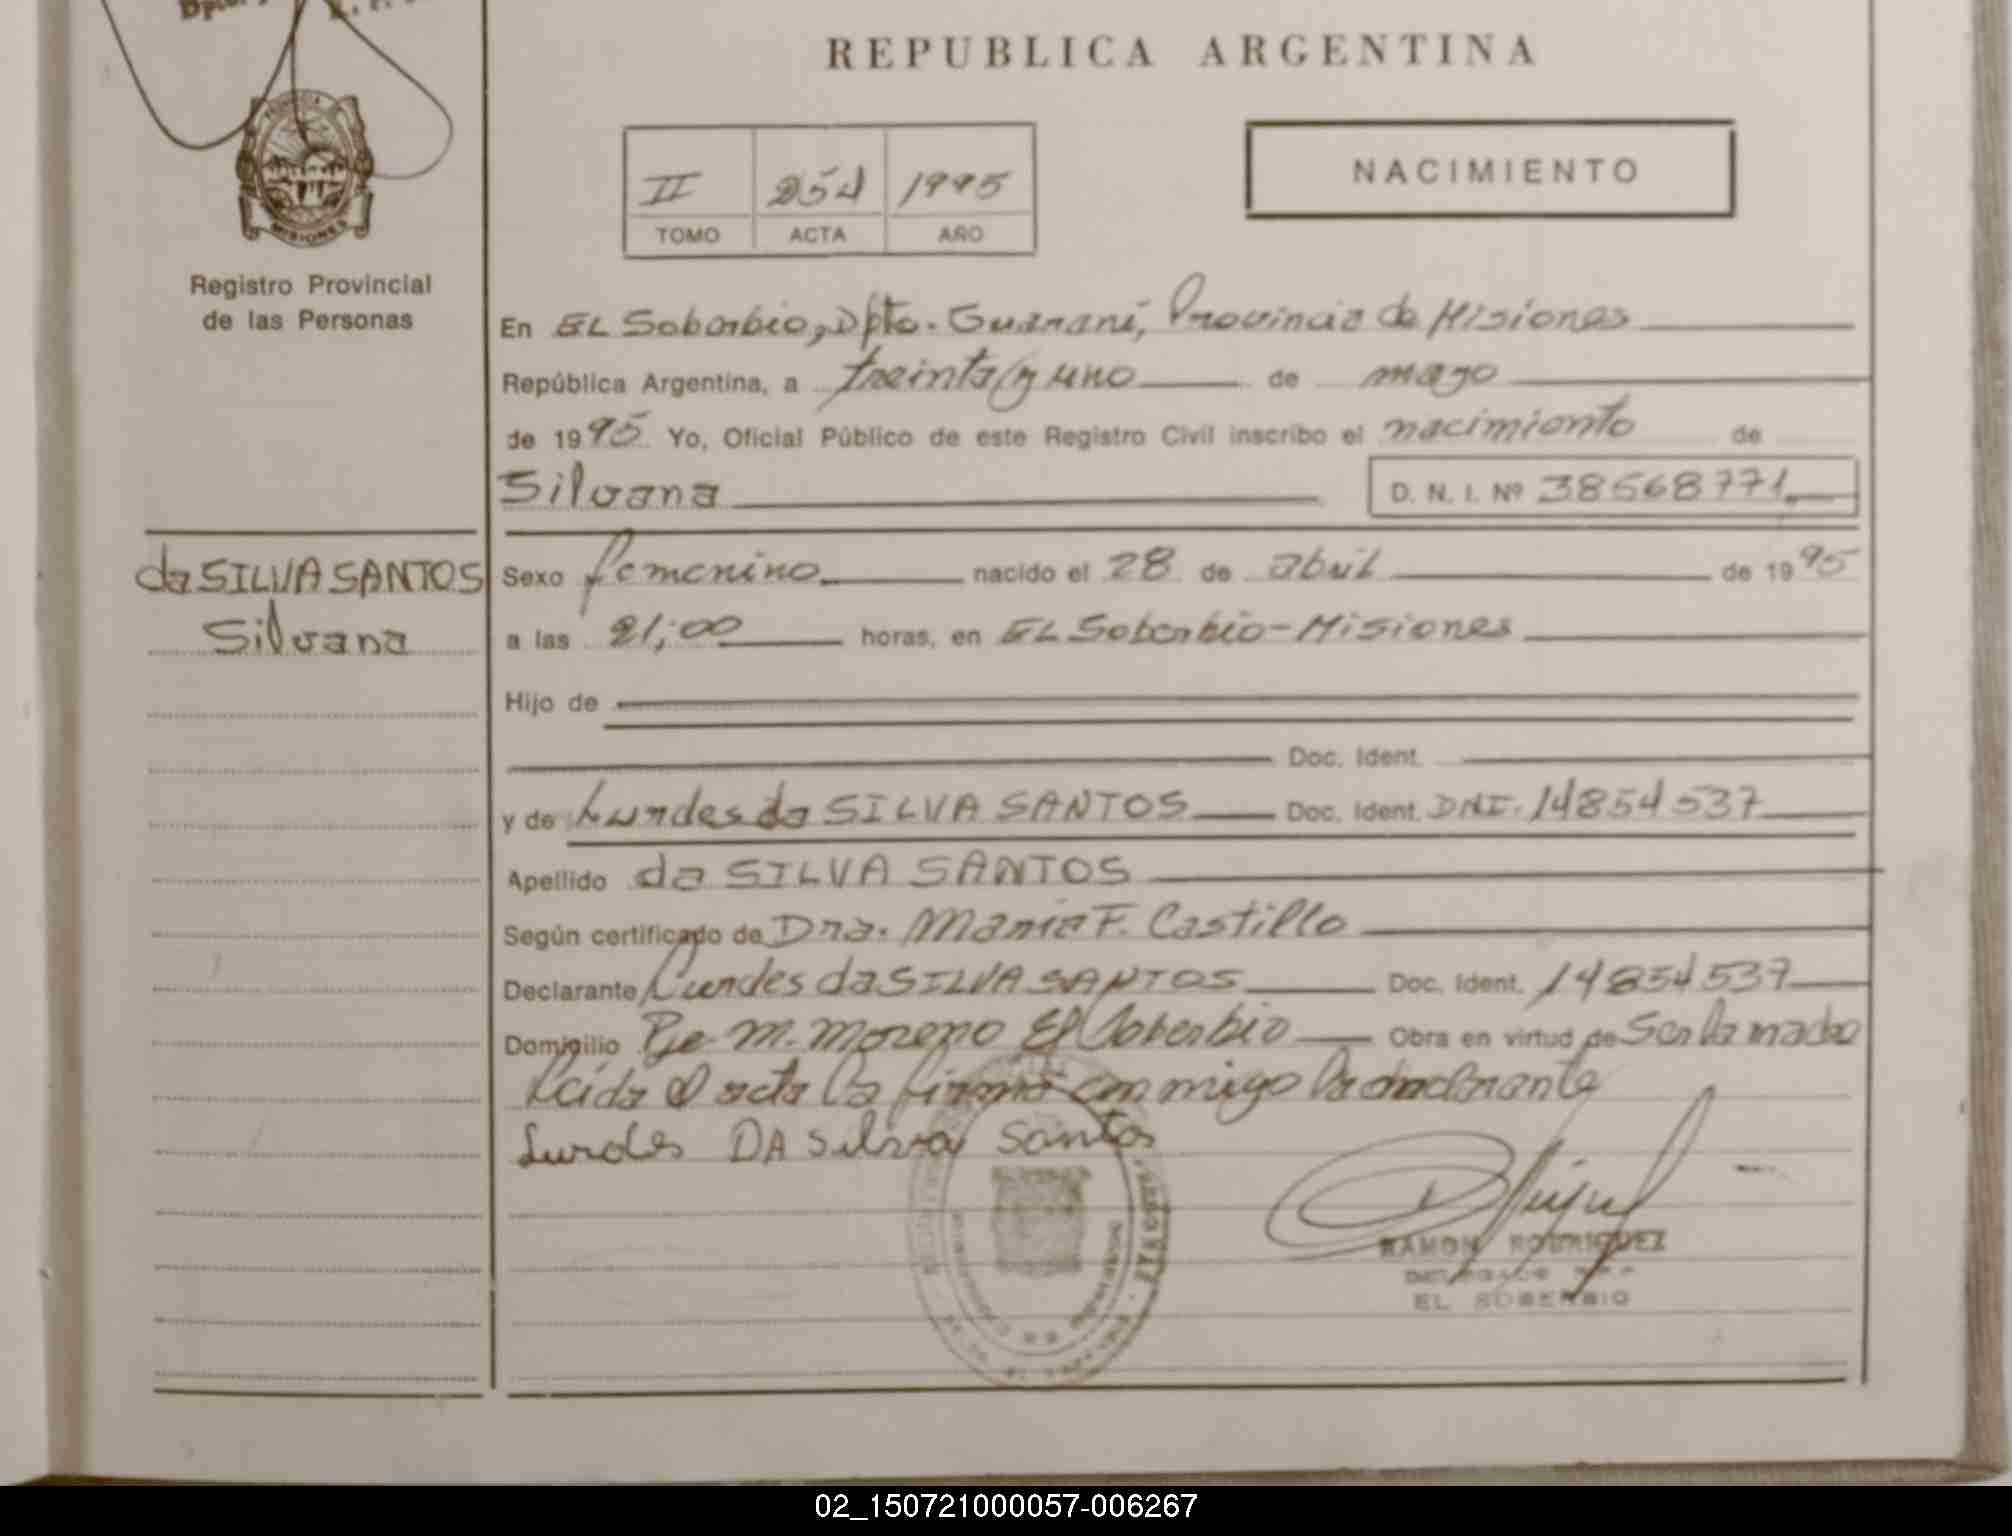 REPUBLICA ARGENTINA
NACIMIENTO
II 254 1995
TOMO ACTA AÑO
MISIONES
Registro Provincial
de las Personas
En EL Soberbio, Dpto. Guaraní, Provincia de Misiones
República Argentina, a treinta y uno de mayo
de 1995 Yo, Oficial Público de este Registro Civil inscribo el nacimiento de
Silvana D. N. I. Nº 38568771
da SILVA SANTOS
Silvana
Sexo femenino nacido el 28 de abril de 1995
a las 21;00 horas, en EL Soberbio-Misiones
Hijo de
Doc. Ident.
y de Lurdes da SILVA SANTOS Doc. Ident. DNI. 14854537
Apellido da SILVA SANTOS
Según certificado de Dra. María F. Castillo
Declarante Lurdes da SILVA SANTOS Doc. Ident. 14854537
Domicilio Pje M. Moreno El Soberbio Obra en virtud de Ser la madre
Leída el acta la firma conmigo la declarante
Lurdes DA Silva Santos
RAMON RODRIGUEZ
EL SOBERBIO
02_150721000057-006267